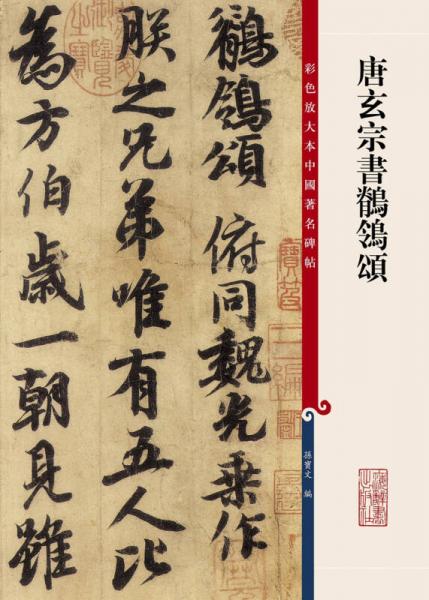 唐玄宗書鶺鴒頌
彩色放大本中國著名碑帖
孫寶文 編
鶺鴒頌 俯同魏光乗作
朕之兄弟唯有五人比
為方伯歳一朝見雖